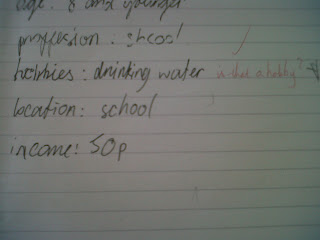 age: 8 and younger
proffession: shcool
hobbies: drinking water is that a hobby?
location: school
income: 50p